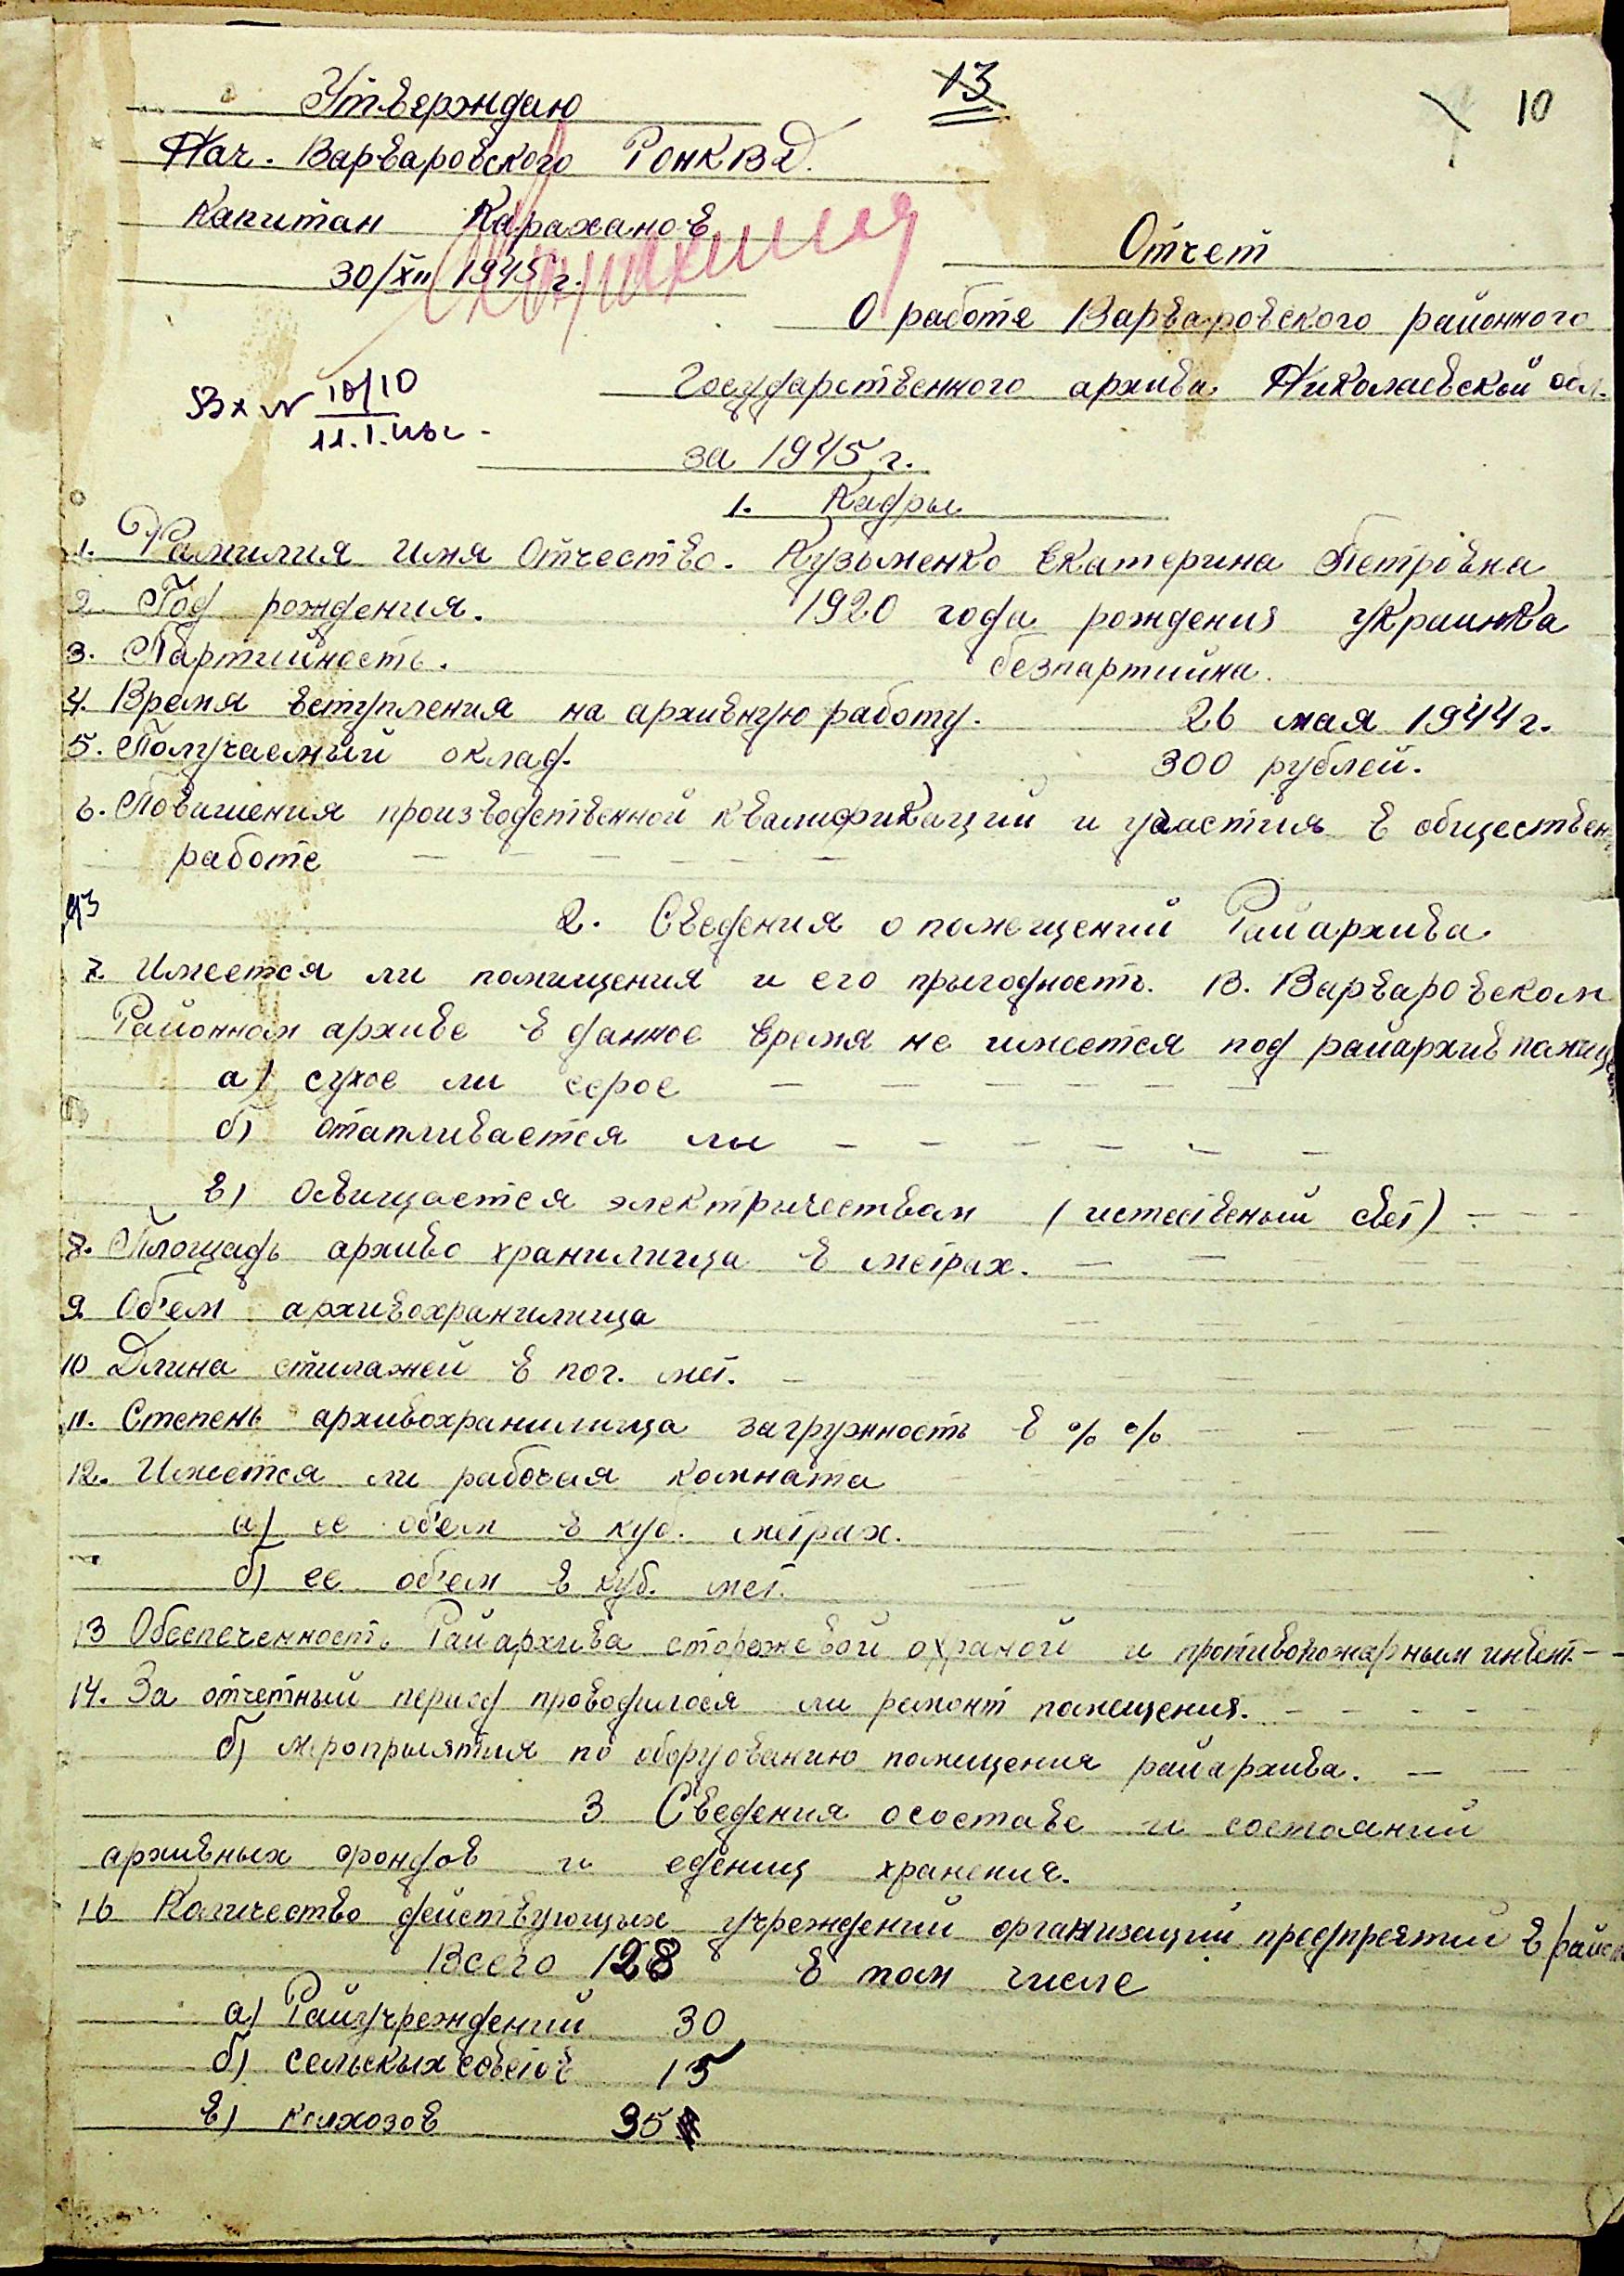 Утверждаю
13
10
Нач. Варваровского РОНКВД.
Капитан Караханов
30/XII 1945 г.
Отчет
О работе Варваровского районного
Государственного архива Николаевской обл.
Вх N 10/10
11.I.
за 1945 г.
1. Кадры
1. Фамилия Имя Отчество. Кузьменко Екатерина Петровна
2. Год рождения. 1920 года рождения украинка
3. Партийность. безпартийна.
4. Время вступления на архивную работу. 26 мая 1944 г.
5. Получаемный оклад. 300 рублей.
6. Повишения производственной квалификаций и участия в обществен
работе — — — — — —
2. Сведения о помещений Райархива
7. Имеется ли помищения и его прыгодность. В. Варваровском
Районном архиве в данное время не имеется под райархив помищ
а) сухое ли серое — — — — — —
б) отапливается ли — — — — — —
в) Освищается электричеством (истественый свет) — — —
8. Площадь архиво хранилища в метрах. — —
9. Об'ем архивохранилища
10 Длина стилажей в пог. мет. —
11. Степень архивохранилища загружность в % % — — — —
12. Имеется ли рабочая комната
а) ее об'ем в куб. метрах.
б) ее об'ем в куб. мет.
13 Обеспеченность Райархива сторожевой охраной и противопожарным инвент. — —
14. За отчетный период проводилося ли ремонт помещения. — — — — —
б) Мропрыятия по оборудованию помищения райархива. — —
3 Сведения осоставе и состояний
архивных фондов и едениц хранения.
16 Количество действующых учреждений организаций предпреятий в район
Всего 128 в том числе
а) Райучреждений 30
б) сельскых советов 15
в) колхозов 35